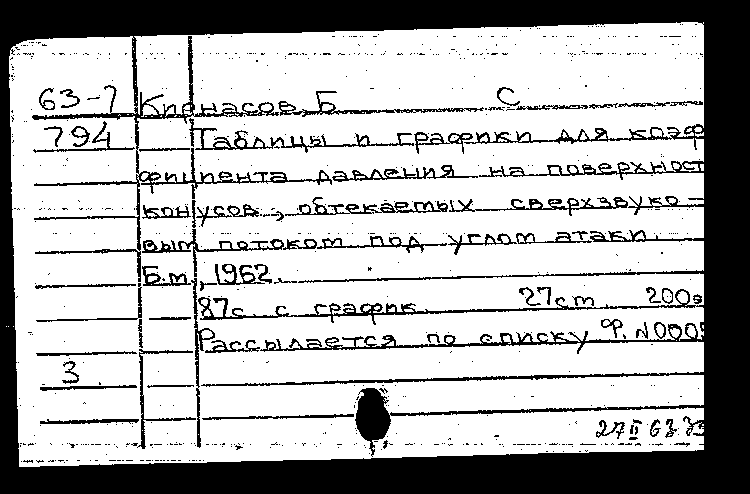 63-7 Кирнасов, Б С
794 Таблицы и графики для коэф
фициента давления на поверхност
конусов, обтекаемых сверхзвуко-
вым потоком под углом атаки.
Б.м., 1962.
87с. с график. 27см 200э
Рассылается по списку Ф. N0005
3
27 II 63